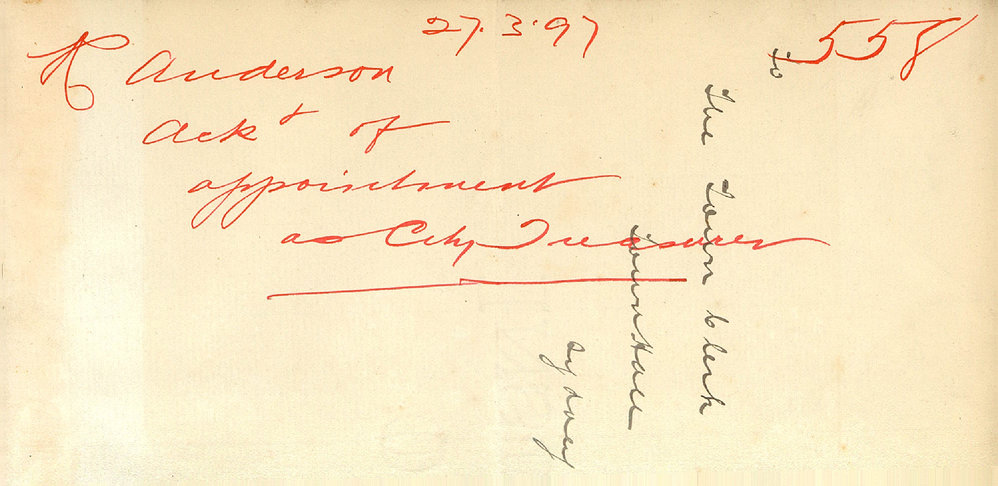 27.3.97
558
R Anderson
Ackt of
appointment
as City Treasurer
To
The Town Clerk
Town Hall
Sydney